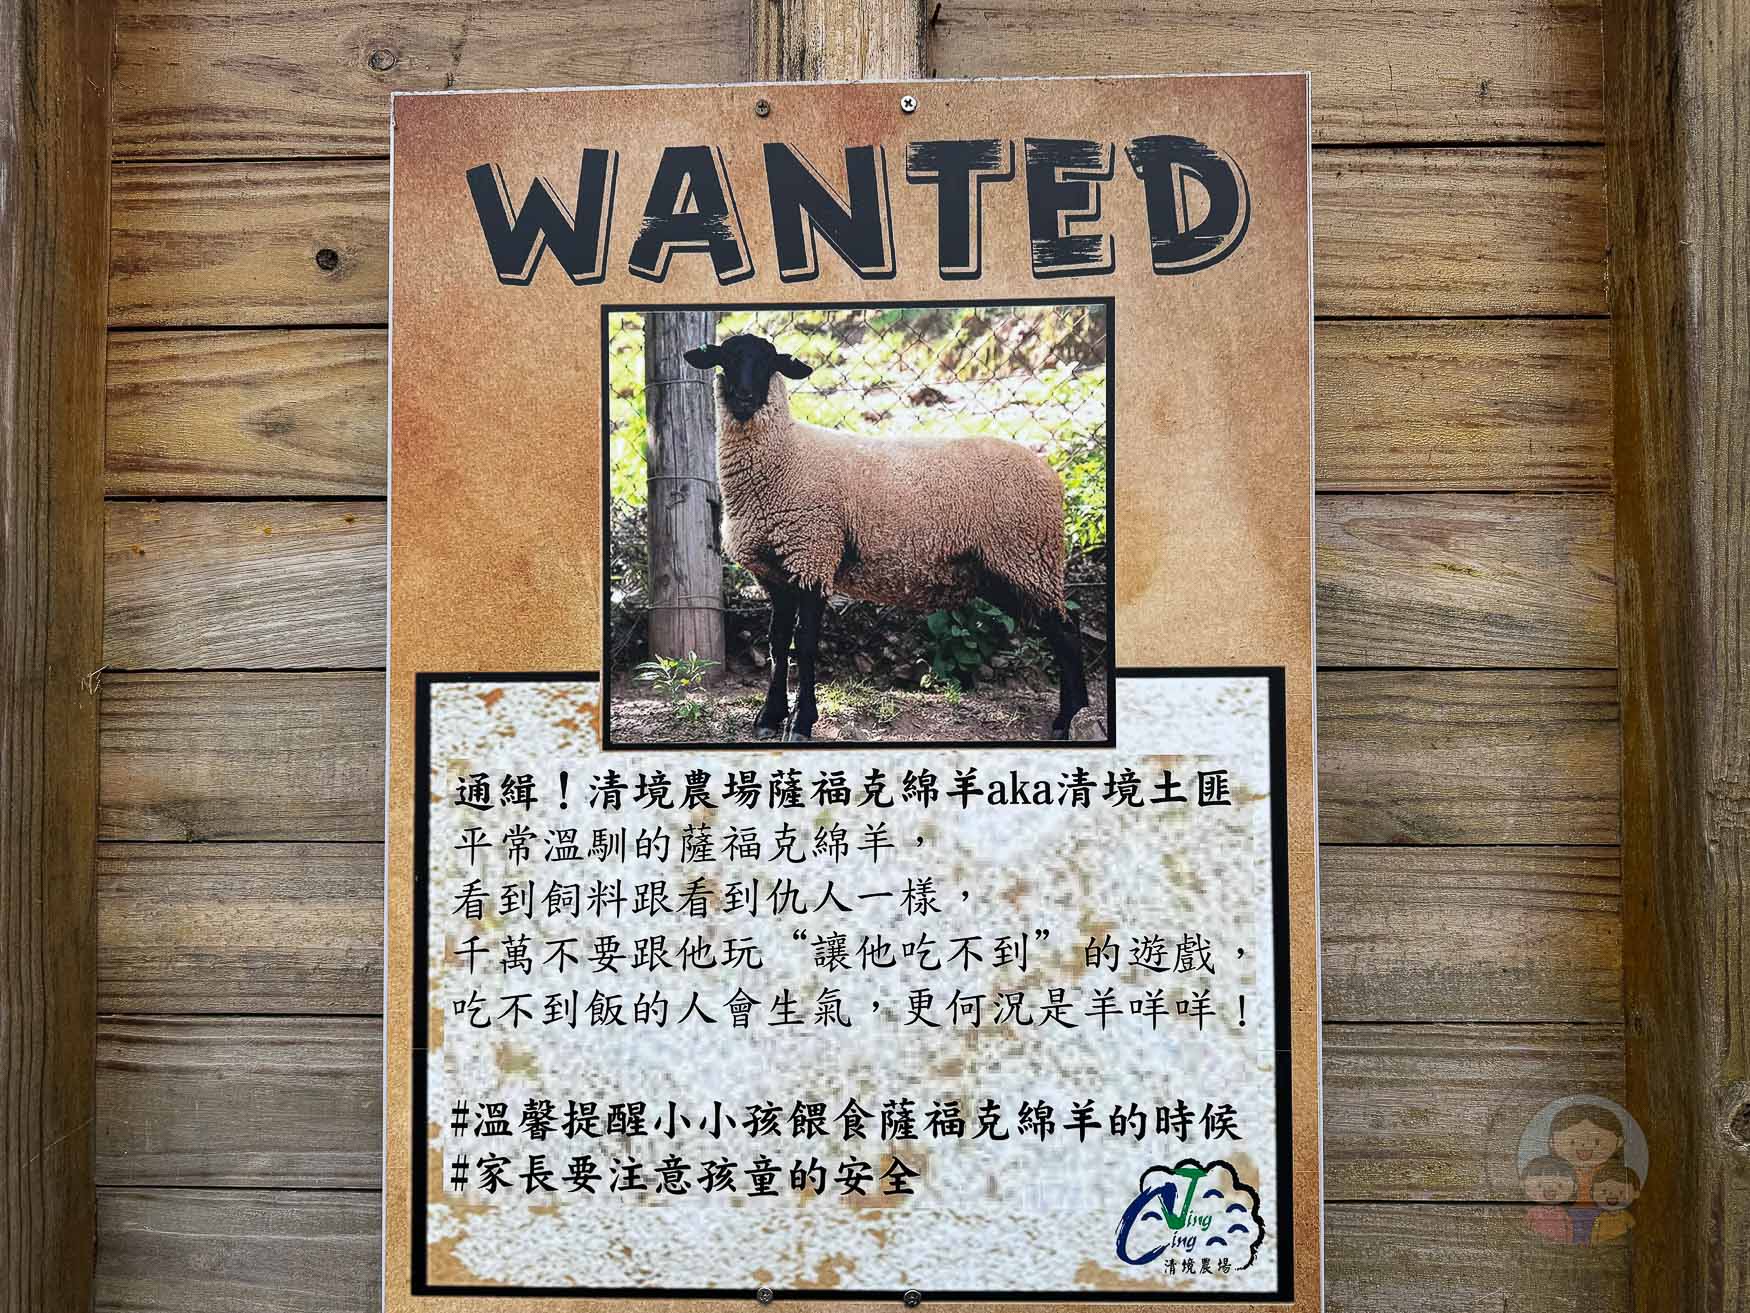 WANTED
通緝！清境農場薩福克綿羊aka清境土匪
平常溫馴的薩福克綿羊，
看到飼料跟看到仇人一樣，
千萬不要跟他玩“讓他吃不到”的遊戲，
吃不到飯的人會生氣，更何況是羊咩咩！
#溫馨提醒小小孩餵食薩福克綿羊的時候
#家長要注意孩童的安全
Jing
Cing
清境農場